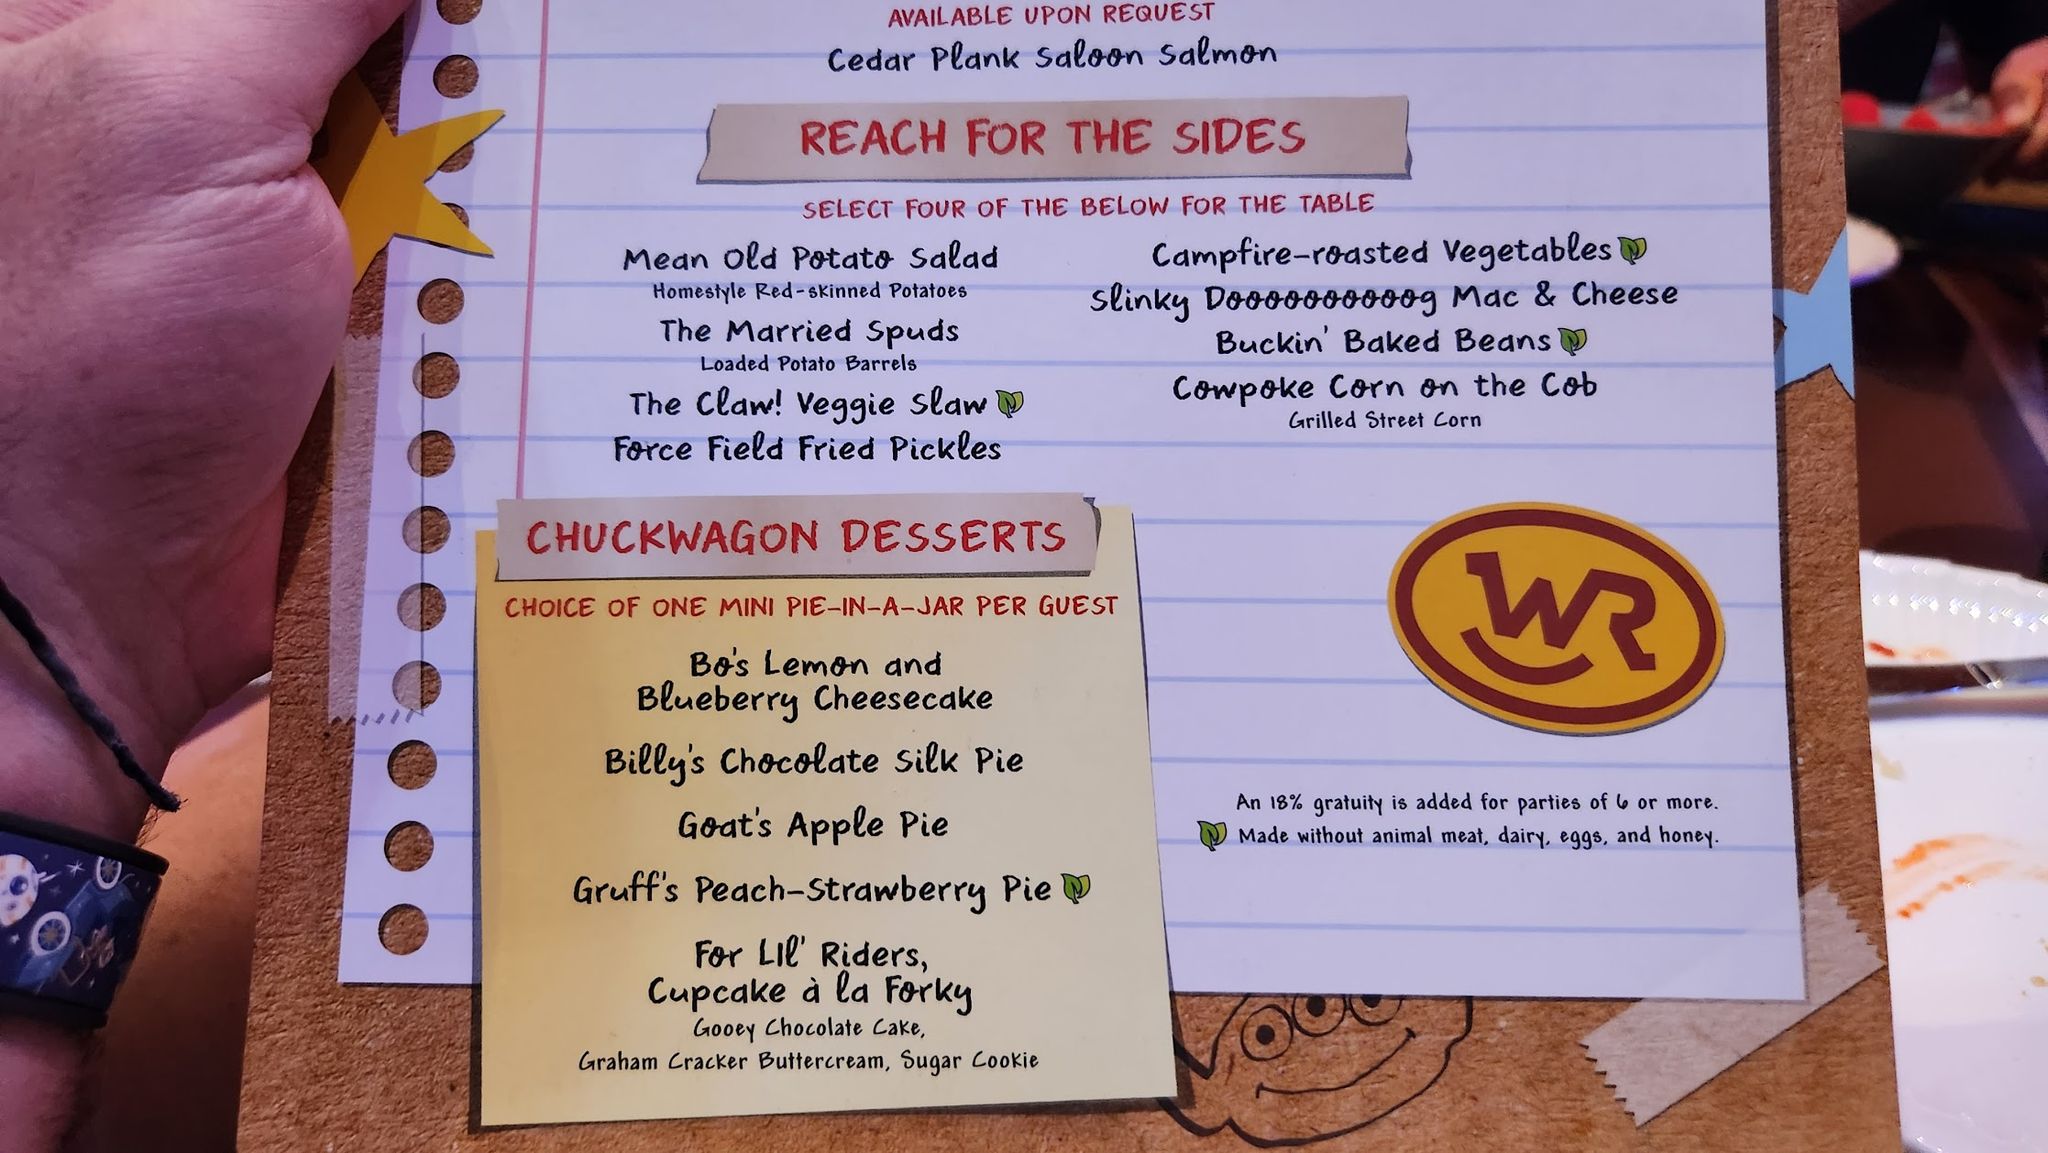 AVAILABLE UPON REQUEST
Cedar Plank Saloon Salmon
REACH FOR THE SIDES
SELECT FOUR OF THE BELOW FOR THE TABLE
Mean Old Potato Salad
Homestyle Red-skinned Potatoes
The Married Spuds
Loaded Potato Barrels
The Claw! Veggie Slaw
Force Field Fried Pickles
Campfire-roasted Vegetables
Slinky Doooooooooog Mac & Cheese
Buckin' Baked Beans
Cowpoke Corn on the Cob
Grilled Street Corn
CHUCKWAGON DESSERTS
CHOICE OF ONE MINI PIE-IN-A-JAR PER GUEST
Bo's Lemon and
Blueberry Cheesecake
Billy's Chocolate Silk Pie
Goat's Apple Pie
Gruff's Peach-Strawberry Pie
For Lil' Riders,
Cupcake à la Forky
Gooey Chocolate Cake,
Graham Cracker Buttercream, Sugar Cookie
WR
An 18% gratuity is added for parties of 6 or more.
Made without animal meat, dairy, eggs, and honey.